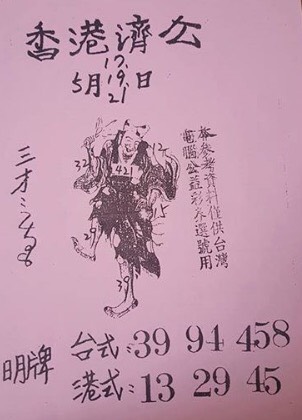 香港濟公
17.
5月19.日
21
本參考資料僅供台灣
電腦公益彩券選號用
421
32
12
15
29
39
明牌
台式:39 94 458
港式:13 29 45